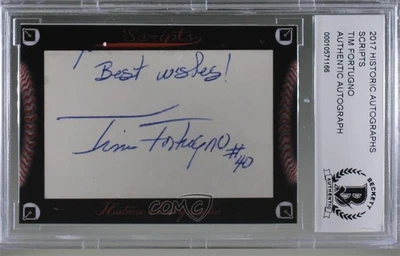 Scripts
Best wishes!
Tim Fortugno
#40
COMC
Historic
2017 HISTORIC AUTOGRAPHS
SCRIPTS
TIM FORTUGNO
AUTHENTIC AUTOGRAPH
00010571166
BECKETT
AUTHENTIC
B